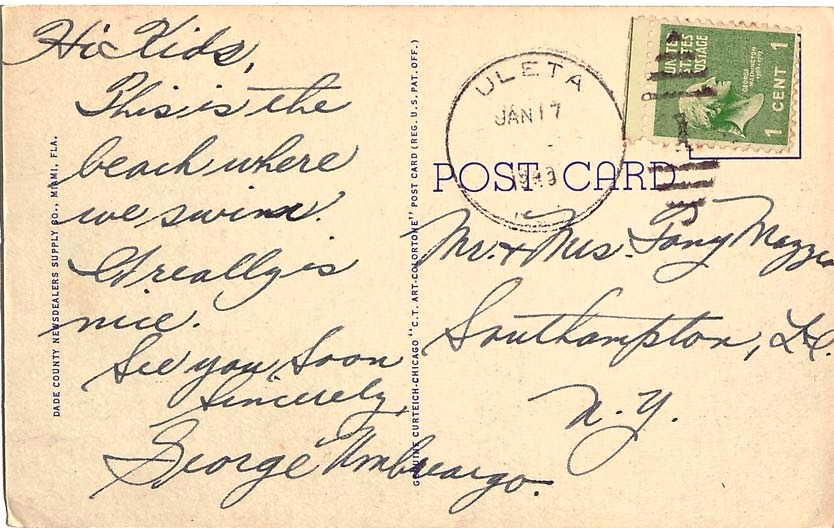 Hi Kids,
This is the
beach where
we swim.
It really is
nice.
See you Soon
Sincerely,
George Umbreargo.
DADE COUNTY NEWSDEALERS SUPPLY CO., MIAMI, FLA.
GENUINE CURTEICH-CHICAGO "C.T. ART-COLORTONE" POST CARD (REG. U.S. PAT. OFF.)
ULETA
JAN 17
UNITED
STATES
POSTAGE
GEORGE
WASHINGTON
1 CENT 1
POST CARD
Mr. & Mrs. Tony
Southampton, L.I.
N.Y.